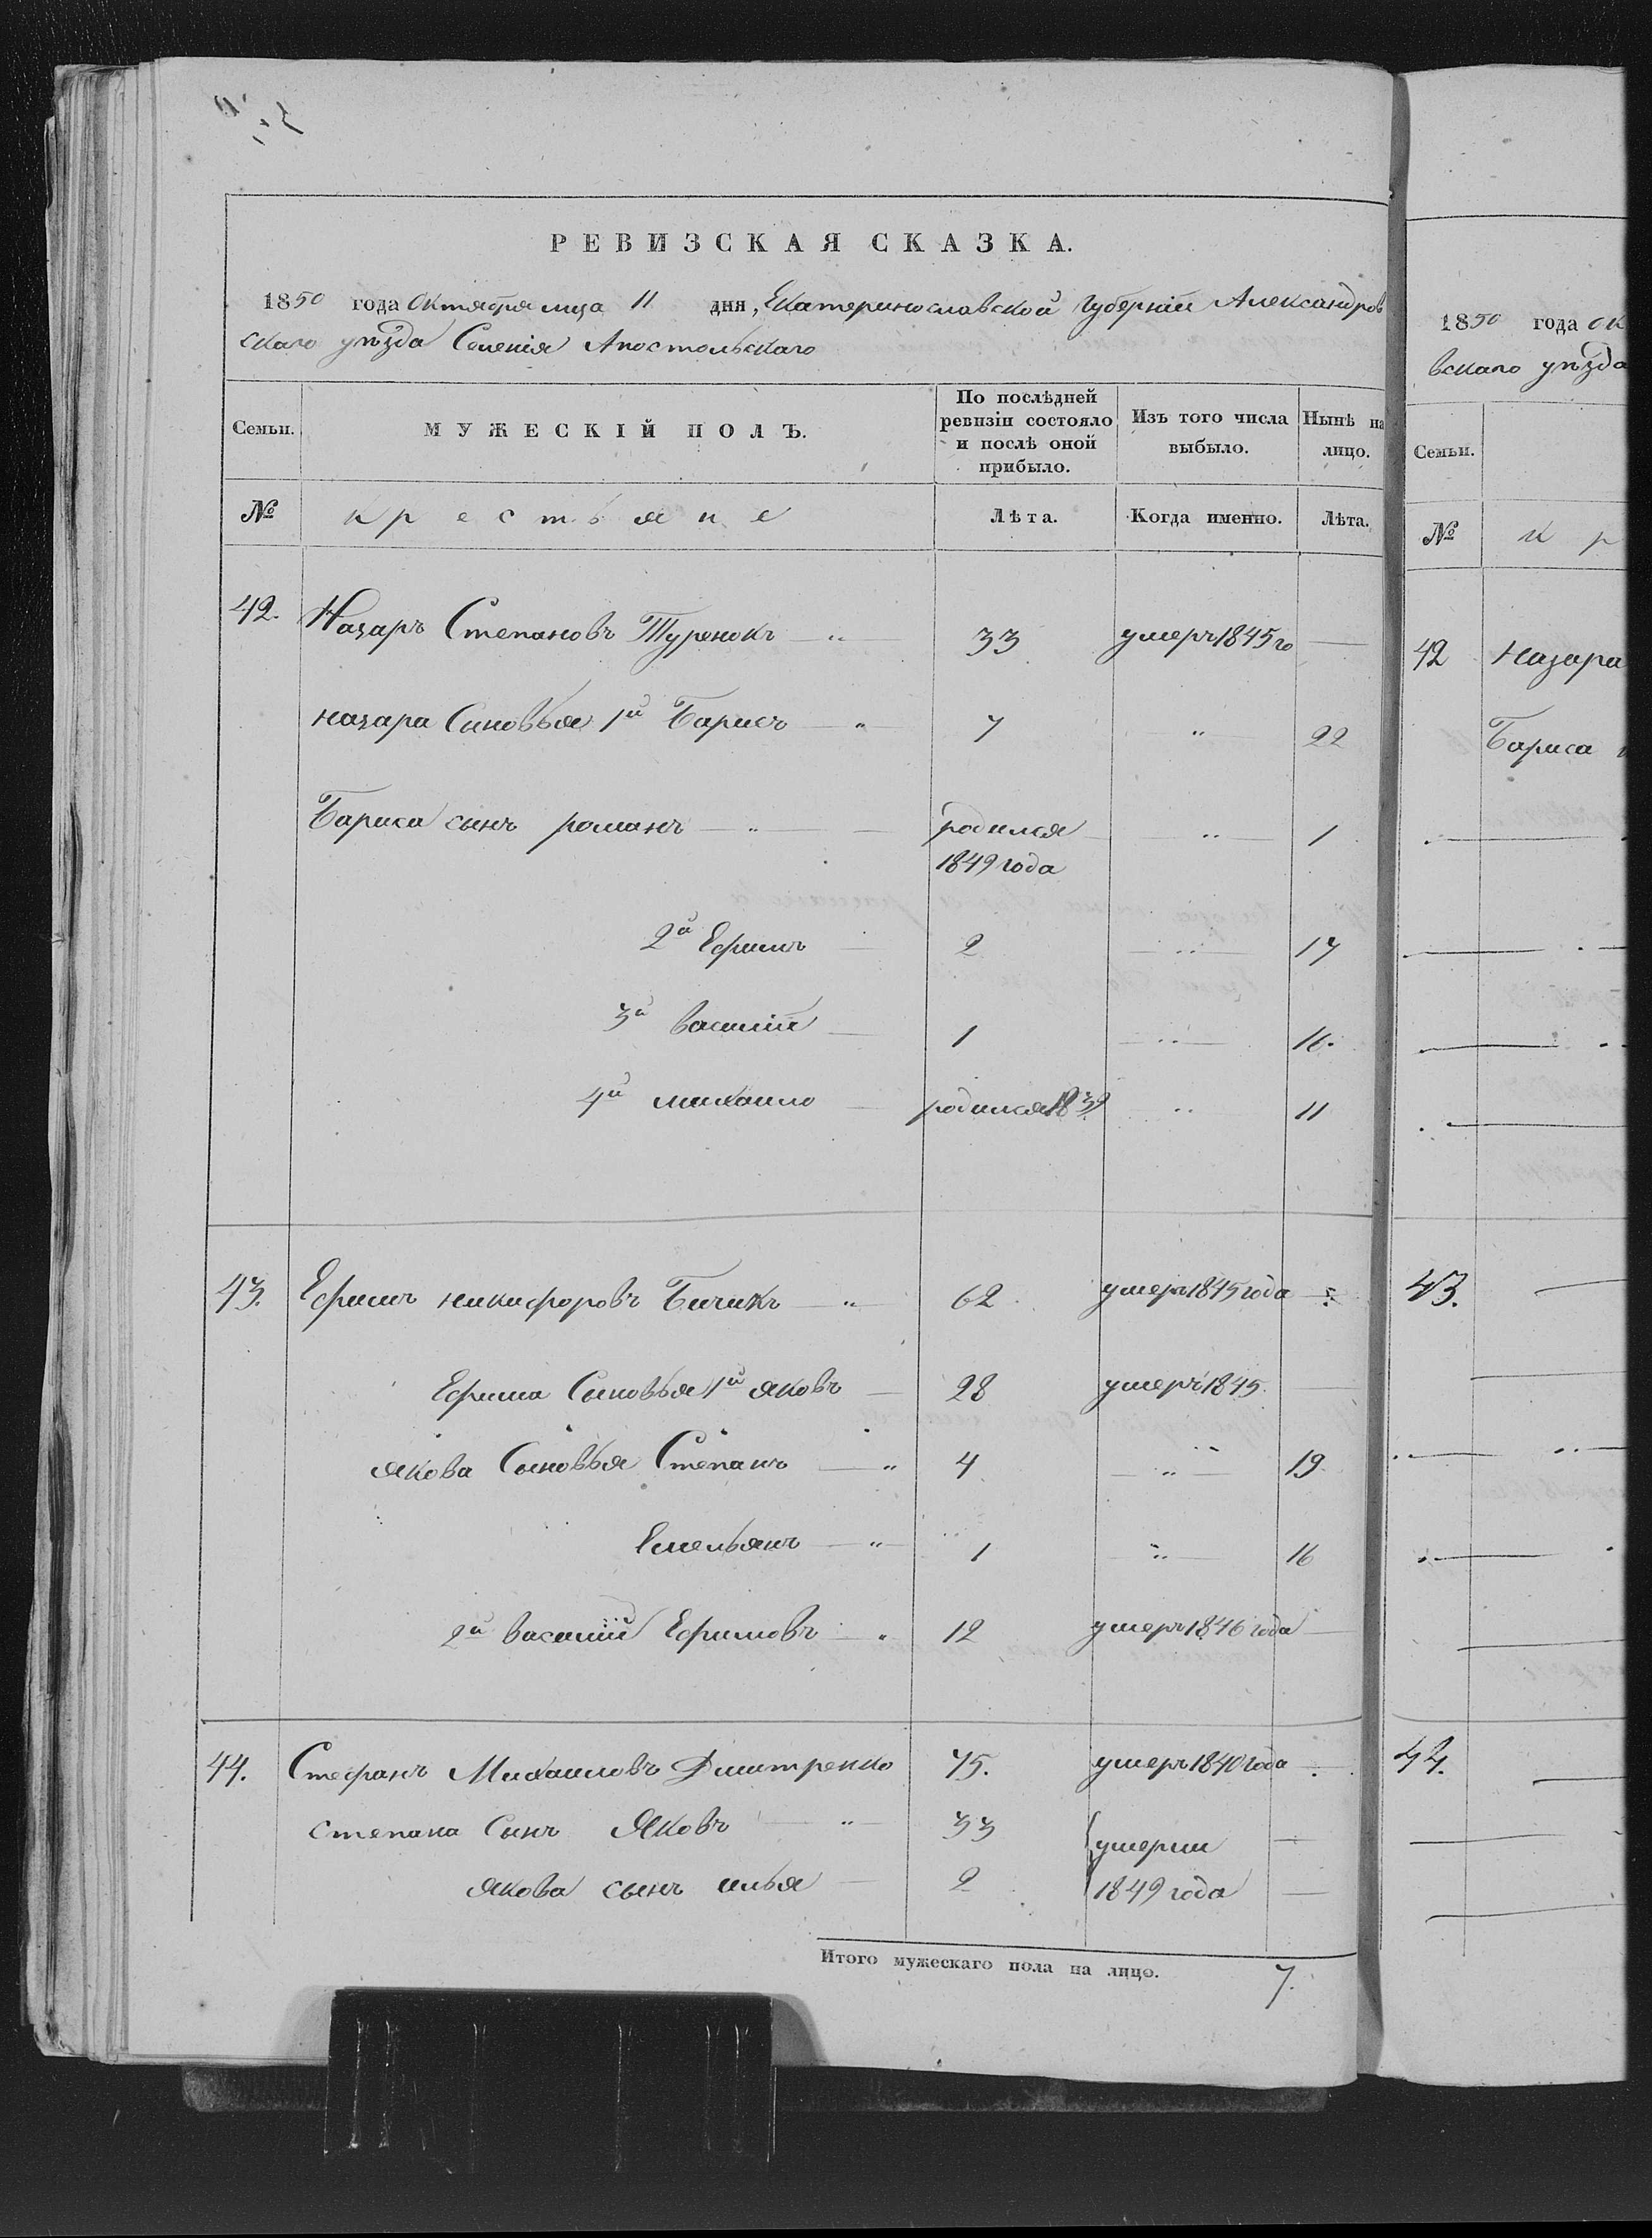 РЕВИЗСКАЯ СКАЗКА.
1850 года Октября мца 11 дня, Екатеринославской Губерніи Александров
скаго уѣзда Селенія Апостольскаго
Семьи. МУЖЕСКІЙ ПОЛЪ. По послѣдней ревизіи состояло и послѣ оной прибыло. Изъ того числа выбыло. Нынѣ на лицо.
№ крестьяне Лѣта. Когда именно. Лѣта.
42. Назаръ Степановъ Туренокъ — „ — 33 умеръ 1845 го —
назара Сыновья 1й Барисъ — „ 7 „ 22
Бариса сынъ романъ — „ — родился — „ — 1
1849 года
2й Ефимъ — 2 — „ — 17
3й василій — 1 — „ — 16.
4й михаило — родился 1839 „ 11
43. Ефимъ никифоровъ Бичикъ — „ — 62 умеръ 1845 года —
Ефима Сыновья 1й яковъ — 28 умеръ 1845.
якова Сыновья Степанъ — „ 4 „ — 19
Емельянъ — „ — 1 — „ — 16
2й василій Ефимовъ — „ 12 умеръ 1846 года —
44. Стефанъ Михаиловъ Дмитренко 75. умеръ 1840 года — .
степана Сынъ Яковъ — „ — 33 { умерли —
якова сынъ илья — 2 1849 года —
Итого мужескаго пола на лицо. 7.
1850 года ок
вскаго уѣзда
Семьи.
№ к р
42 Назара
Бариса
43.
44.